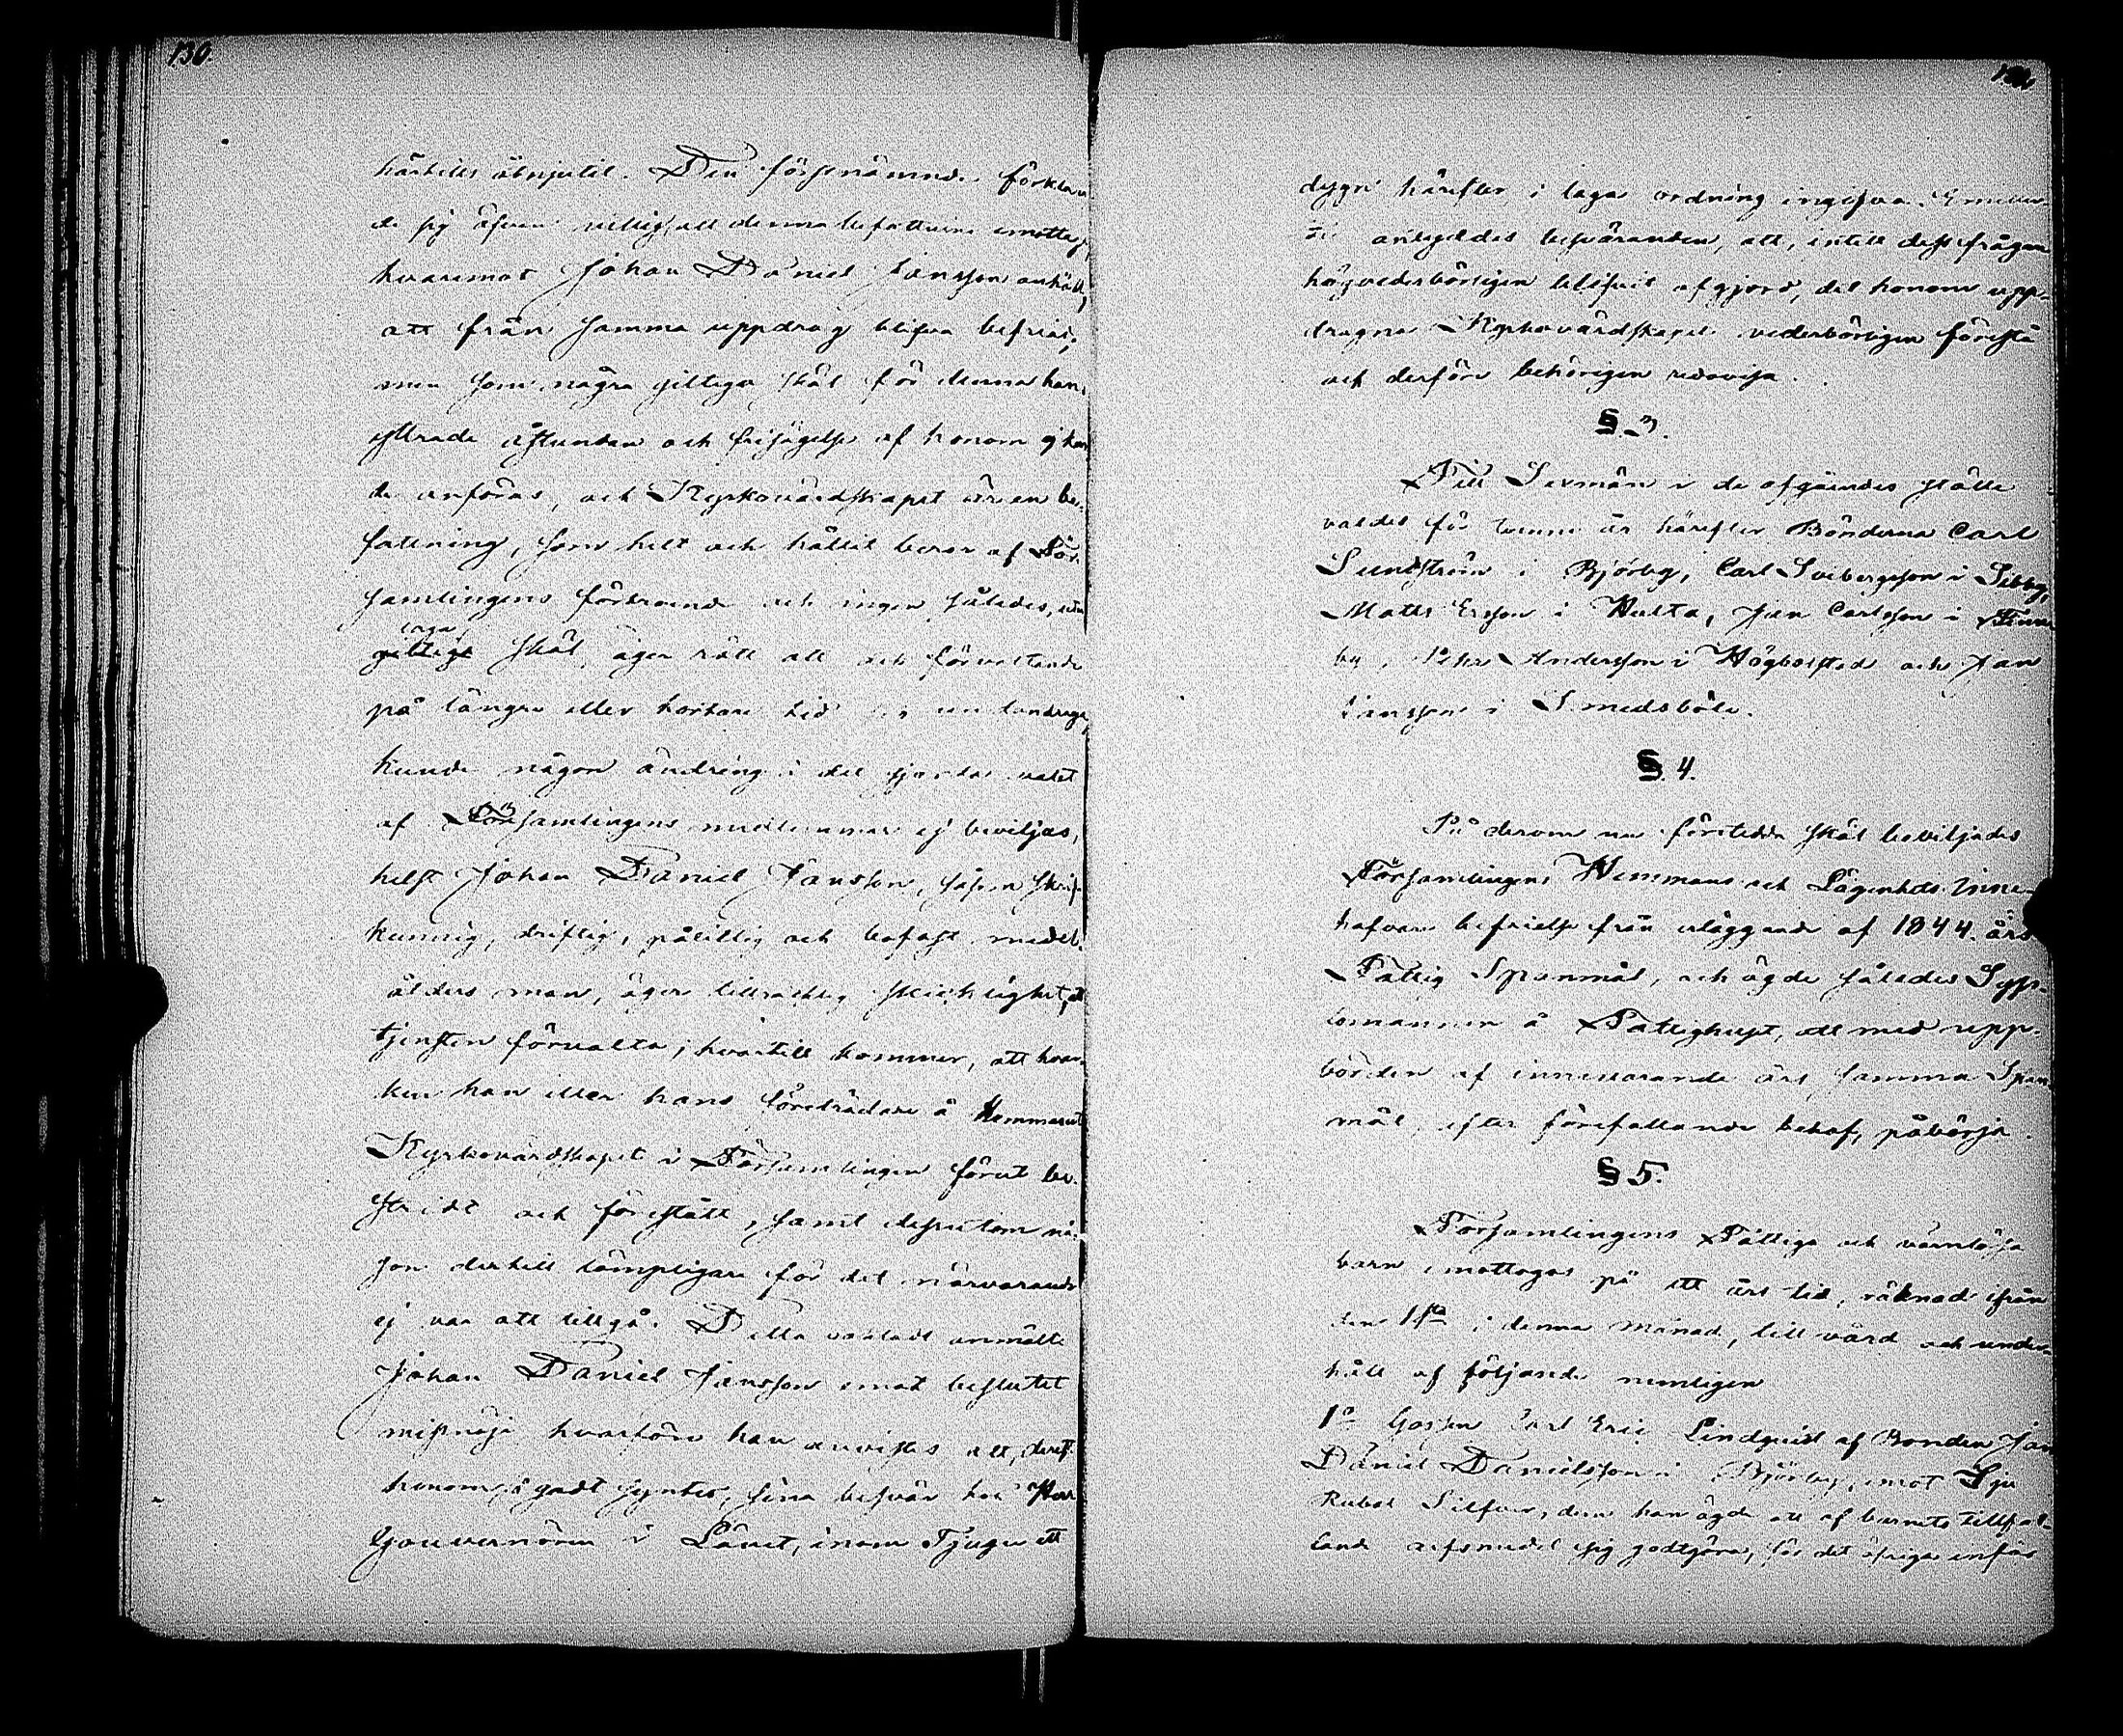 130.
härtills åtnjutit. Den förstnämnde förklara
de sig äfven villig, att denna befattning emottaga,
hvaremot Johan Daniel Jansson anhöll,
att från samma uppdrag blifva befriad;
men som några giltiga skäl för denna hans
yttrade åstundan och frisägelse af honom ej kun
de anföras, och Kyrkovärdskapet är en be-
fattning, som helt och hållit beror af För-
samlingens förtroende och ingen således, utan
laga
giltiga skäl, äger rätt att och förvaltande
på längre eller kortare tid sig undandraga,
kunde någon ändring i det gjorda valet
af Församlingens medlemmar ej beviljas,
helst Johan Daniel Jansson, såsom skrif
kunnig, driftig, pålitlig och bofast medel-
ålders man, äger tillräcklig skicklighet, att
tjensten förvalta; hvartill kommer, att hvar-
ken han eller hans företrädare å Hemmanet
Kyrkovärdskapet i Församlingen förut be-
stridt och förestått, samt dessutom nå-
gon dertill lämpligare för det närvarande
ej var att tillgå. Detta oaktadt anmälte
Johan Daniel Jansson emot beslutet
missnöje hvarföre han anvistes att, derest
honom så godt syntes, sina besvär hos Herr
Gouvernören i Länet, inom Tjugu ett
dygn härefter, i laga ordning ingifva. Emeller-
tid ansåges besvär­anden, att, intill dess frågan
högvederbörligen blifvit afgjord, det honom upp-
dragna Kyrkovärdskapet vederbörligen förestå
och derföre behörigen redovisa.
§. 3.
Till Sexmän i de afgåendes ställe
valdes för tvenne år härefter Bönderna Carl
Sundström i Björby, Carl Svibergsson i Sibby,
Matts Ersson i Hulta, Jan Carlsson i Finn
by, Pehr Andersson i Högbolsted och Jan
Jansson i Smedsböle.
§. 4.
På derom nu företedda skäl beviljades
Församlingens Hemmans och Lägenhets Inne-
hafvare befrielse från erläggande af 1844. års
Fattig Spanmål, och ägde således Syss-
lomannen å Fattighuset, att med upp-
börden af innevarande års samma Span
mål, efter förefallande behof, påbörja.
§ 5.
Församlingens Fattiga och värnlösa
barn emottogos på ett års tid, räknad ifrån
den 1sta i denna månad, till vård och under-
håll af följande nemligen
1o Gossen Carl Eric Lindqvist af Bonden Jan
Daniel Danielsson i Björby, emot Sju
Rubel Silfver, dem han ägde att af barnets tillfal-
lande arfsmedel sig godtgöra, för det öfriga enfär